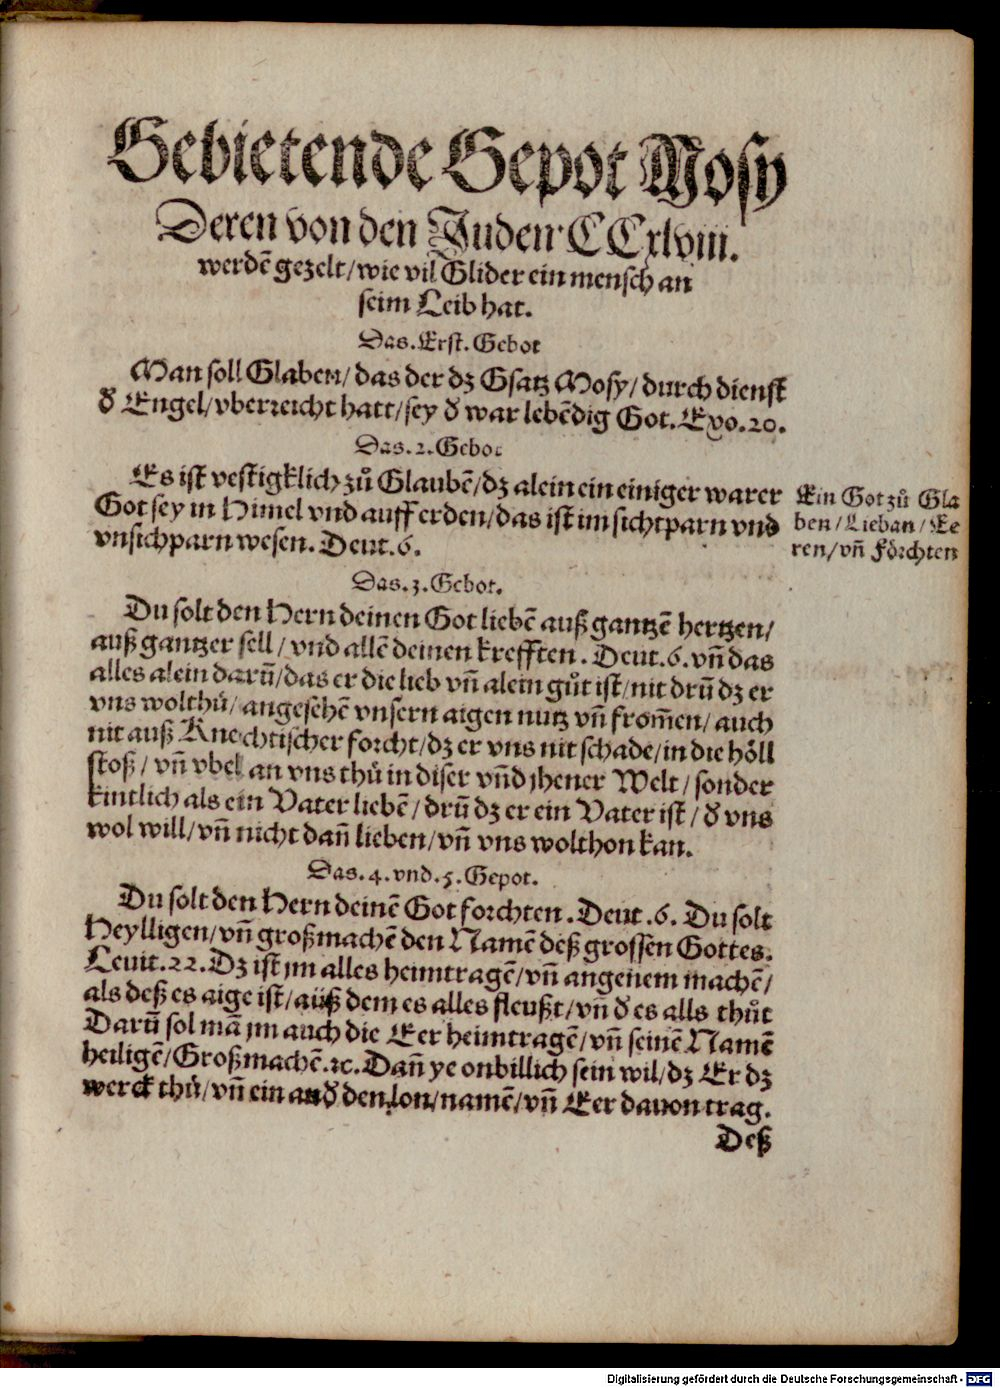 Gebietende Gepot Mosy
Deren von den Juden CCxlviii.
werdẽ gezelt/wie vil Glider ein mensch an
seim Leib hat.
Das. Erst. Gebot
Man soll Glaben/das der dz Gsatz Mosy/durch dienst
đ Engel/vberreicht hatt/sey đ war lebẽdig Got. Exo. 20.
Das. 2. Gebot
Es ist vestigklich zuͦ Glaubẽ/dz alein ein einiger warer
Got sey in Himel vnd auff erden/das ist im sichtparn vnd
vnsichparn wesen. Deut. 6.
Ein Got zuͦ Gla
ben/Lieban/Ee
ren/vñ Foͤrchten
Das. 3. Gebot.
Du solt den Hern deinen Got liebẽ auß gantzẽ hertzen/
auß gantzer sell/vnd allẽ deinen krefften. Deut. 6. vñ das
alles alein darũ/das er die lieb vñ alein guͦt ist/nit drũ dz er
vns wolthuͦ/angesehẽ vnsern aigen nutz vñ from̃en/auch
nit auß Knechtischer forcht/dz er vns nit schade/in die hoͤll
stoß/vñ vbel an vns thuͦ in diser vñd jhener Welt/sonder
kintlich als ein Vater liebẽ/drũ dz er ein Vater ist/đ vns
wol will/vñ nicht dañ lieben/vñ vns wolthon kan.
Das. 4. vnd. 5. Gepot.
Du solt den Hern deinẽ Got forchten. Deut. 6. Du solt
Heylligen/vñ großmachẽ den Namẽ deß grossen Gottes.
Leuit. 22. Dz ist jm alles heimtragẽ/vñ angenem machẽ/
als deß es aige ist/auß dem es alles fleußt/vñ đ es alls thuͦt
Darũ sol mã jm auch die Eer heimtragẽ/vñ seinẽ Namẽ
heiligẽ/Großmachẽ. ꝛc. Dañ ye onbillich sein wil/dz Er dz
werck thuͦ/vñ ein anđ den lon/namẽ/vñ Eer dauon trag.
Deß
Digitalisierung gefördert durch die Deutsche Forschungsgemeinschaft - DFG